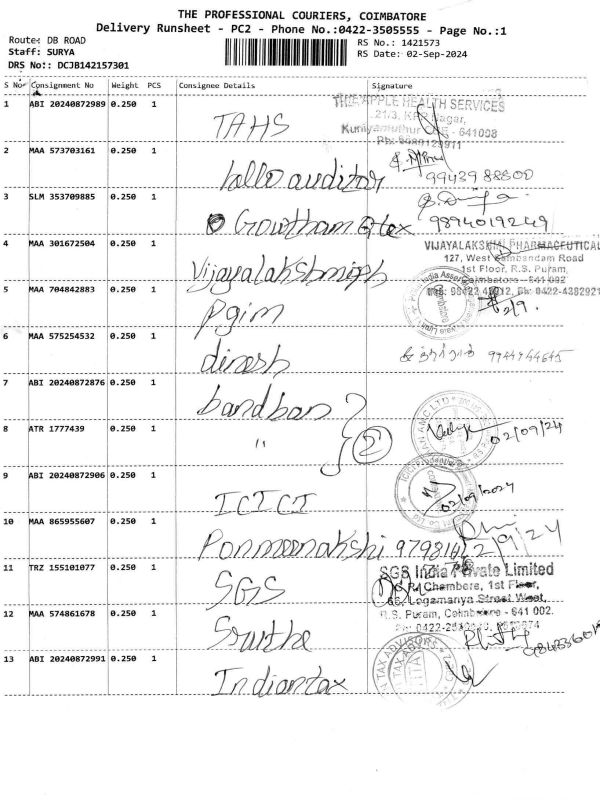 THE PROFESSIONAL COURIERS, COIMBATORE
Delivery Runsheet - PC2 - Phone No.:0422-3505555 - Page No.:1
Route: DB ROAD
Staff: SURYA
DRS No:: DCJB142157301
RS No.: 1421573
RS Date: 02-Sep-2024
S No Consignment No Weight PCS Consignee Details Signature
1 ABI 20240872989 0.250 1 TAHS
THE APPLE HEALTH SERVICES
21/3, KRP Nagar,
Kuniyamuthur CBE - 641008
2 MAA 573703161 0.250 1 auditor
99439 88500
3 SLM 353709885 0.250 1 Gowtham tex 9894019249
4 MAA 301672504 0.250 1 Vijayalakshmi ph
VIJAYALAKSHMI PHARMACEUTICAL
127, West Sambandam Road
1st Floor, R.S. Puram,
Coimbatore - 641 002
5 MAA 704842883 0.250 1 Pgim 2/9.
6 MAA 575254532 0.250 1 dinesh
7 ABI 20240872876 0.250 1 bandhan
8 ATR 1777439 0.250 1 " 2 02/09/24
9 ABI 20240872906 0.250 1 ICICI 02/09/2024
10 MAA 865955607 0.250 1 Ponmeenakshi 2/9/24
11 TRZ 155101077 0.250 1 SGS
SGS India Private Limited
Chambers, 1st Floor,
Logamanya Street West,
R.S. Puram, Coimbatore - 641 002.
12 MAA 574861678 0.250 1
13 ABI 20240872991 0.250 1 Indiantax
TAX ADVISORS